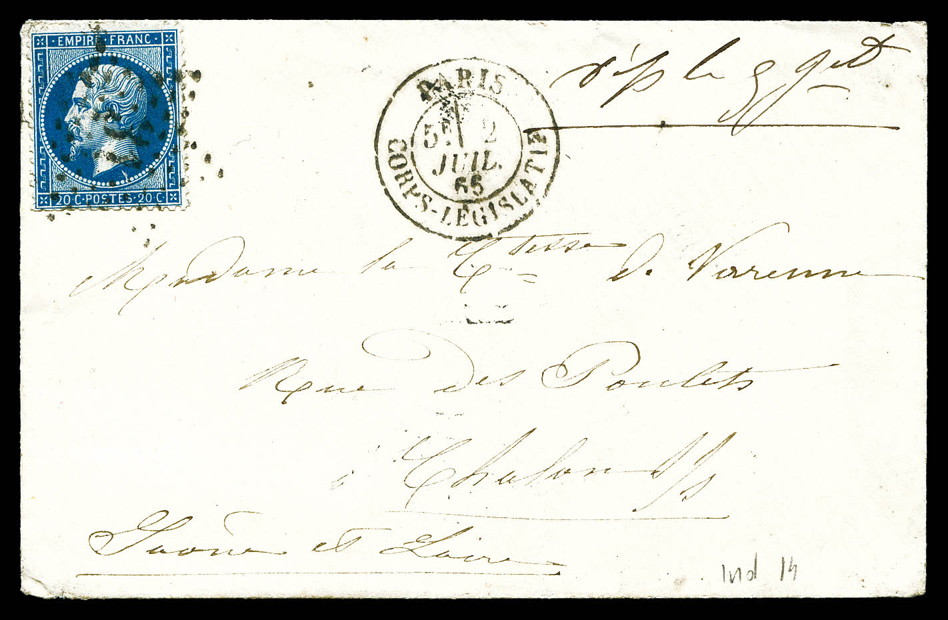 EMPIRE·FRANC·
20 C·POSTES·20 C·
PARIS
5E 2
JUIL.
65
CORPS-LÉGISLATIF
rép le 5 Jet
Madame la Ctesse de Varenne
Rue des Poulets
à Chalon s/s
Saône et Loire
Ind 14